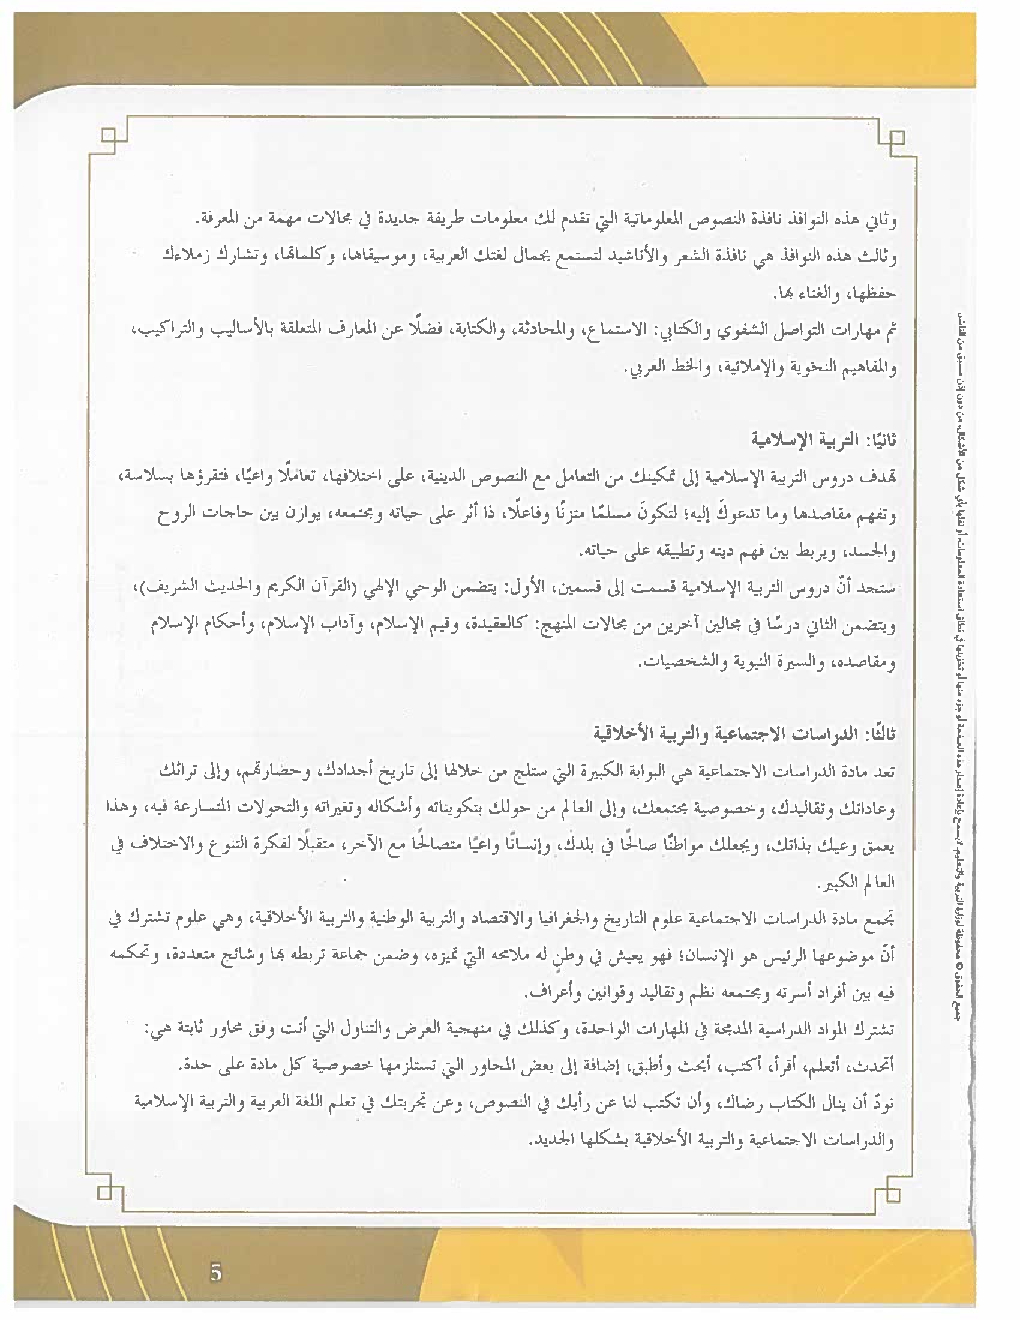 وثاني هذه النوافذ نافذة النصوص المعلوماتية التي تقدم لك معلومات طريفة جديدة في مجالات مهمة من المعرفة.
وثالث هذه النوافذ هي نافذة الشعر والأناشيد لتستمع بجمال لغتك العربية، وموسيقاها، وكلماتها، وتشارك زملاءك
حفظها، والغناء بها.
ثم مهارات التواصل الشفوي والكتابي: الاستماع، والمحادثة، والكتابة، فضلًا عن المعارف المتعلقة بالأساليب والتراكيب،
والمفاهيم النحوية والإملائية، والخط العربي.
ثانيًا: التربية الإسلامية
تهدف دروس التربية الإسلامية إلى تمكينك من التعامل مع النصوص الدينية، على اختلافها، تعاملًا واعيًا، فتقرؤها بسلاسة،
وتفهم مقاصدها وما تدعوك إليه؛ لتكونَ مسلمًا متزنًا وفاعلًا، ذا أثر على حياته ومجتمعه، يوازن بين حاجات الروح
والجسد، ويربط بين فهم دينه وتطبيقه على حياته.
ستجد أنّ دروس التربية الإسلامية قسمت إلى قسمين، الأول: يتضمن الوحي الإلهي (القرآن الكريم والحديث الشريف)،
ويتضمن الثاني درسًا في مجالين آخرين من مجالات المنهج: كالعقيدة، وقيم الإسلام، وآداب الإسلام، وأحكام الإسلام
ومقاصده، والسيرة النبوية والشخصيات.
ثالثًا: الدراسات الاجتماعية والتربية الأخلاقية
تعد مادة الدراسات الاجتماعية هي البوابة الكبيرة التي ستلج من خلالها إلى تاريخ أجدادك، وحضارتهم، وإلى تراثك
وعاداتك وتقاليدك، وخصوصية مجتمعك، وإلى العالم من حولك بتكويناته وأشكاله وتغيراته والتحولات المتسارعة فيه، وهذا
يعمق وعيك بذاتك، ويجعلك مواطنًا صالحًا في بلدك، وإنسانًا واعيًا متصالحًا مع الآخر، متقبلًا لفكرة التنوع والاختلاف في
العالم الكبير.
تجمع مادة الدراسات الاجتماعية علوم التاريخ والجغرافيا والاقتصاد والتربية الوطنية والتربية الأخلاقية، وهي علوم تشترك في
أنّ موضوعها الرئيس هو الإنسان؛ فهو يعيش في وطنٍ له ملامحه التي تميزه، وضمن جماعة تربطه بها وشائج متعددة، وتحكمه
فيه بين أفراد أسرته ومجتمعه نظم وتقاليد وقوانين وأعراف.
تشترك المواد الدراسية المدمجة في المهارات الواحدة، وكذلك في منهجية العرض والتناول التي أتت وفق محاور ثابتة هي:
أتحدث، أتعلم، أقرأ، أكتب، أبحث وأطبق، إضافة إلى بعض المحاور التي تستلزمها خصوصية كل مادة على حدة.
نودّ أن ينال الكتاب رضاك، وأن تكتب لنا عن رأيك في النصوص، وعن تجربتك في تعلم اللغة العربية والتربية الإسلامية
والدراسات الاجتماعية والتربية الأخلاقية بشكلها الجديد.
جميع الحقوق © محفوظة لوزارة التربية والتعليم. لا يسمح بإعادة إصدار هذه الصفحة أو جزء منها أو تخزينها في نطاق استعادة المعلومات، أو نقلها بأي شكل من الأشكال، من دون إذن مسبق من الناشر.
5